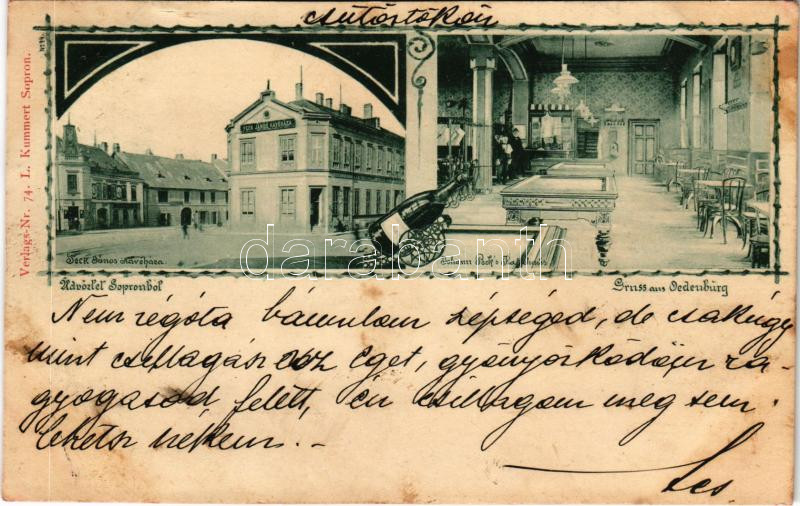 csütörtökön
No 24.
Verlags-Nr. 74. L. Kummert Sopron.
PECK JÁNOS KÁVÉHÁZA
Peck János kávéháza.
Johann Peck's Kaffeehaus
darabanth
Üdvözlet Sopronból
Gruss aus Oedenburg
Nem régóta bámulom szépséged, de csakúgy
mint csillagász az Eget, gyönyörködöm ra-
gyogásod felett, én csillagom meg sem
lehetsz nékem. -